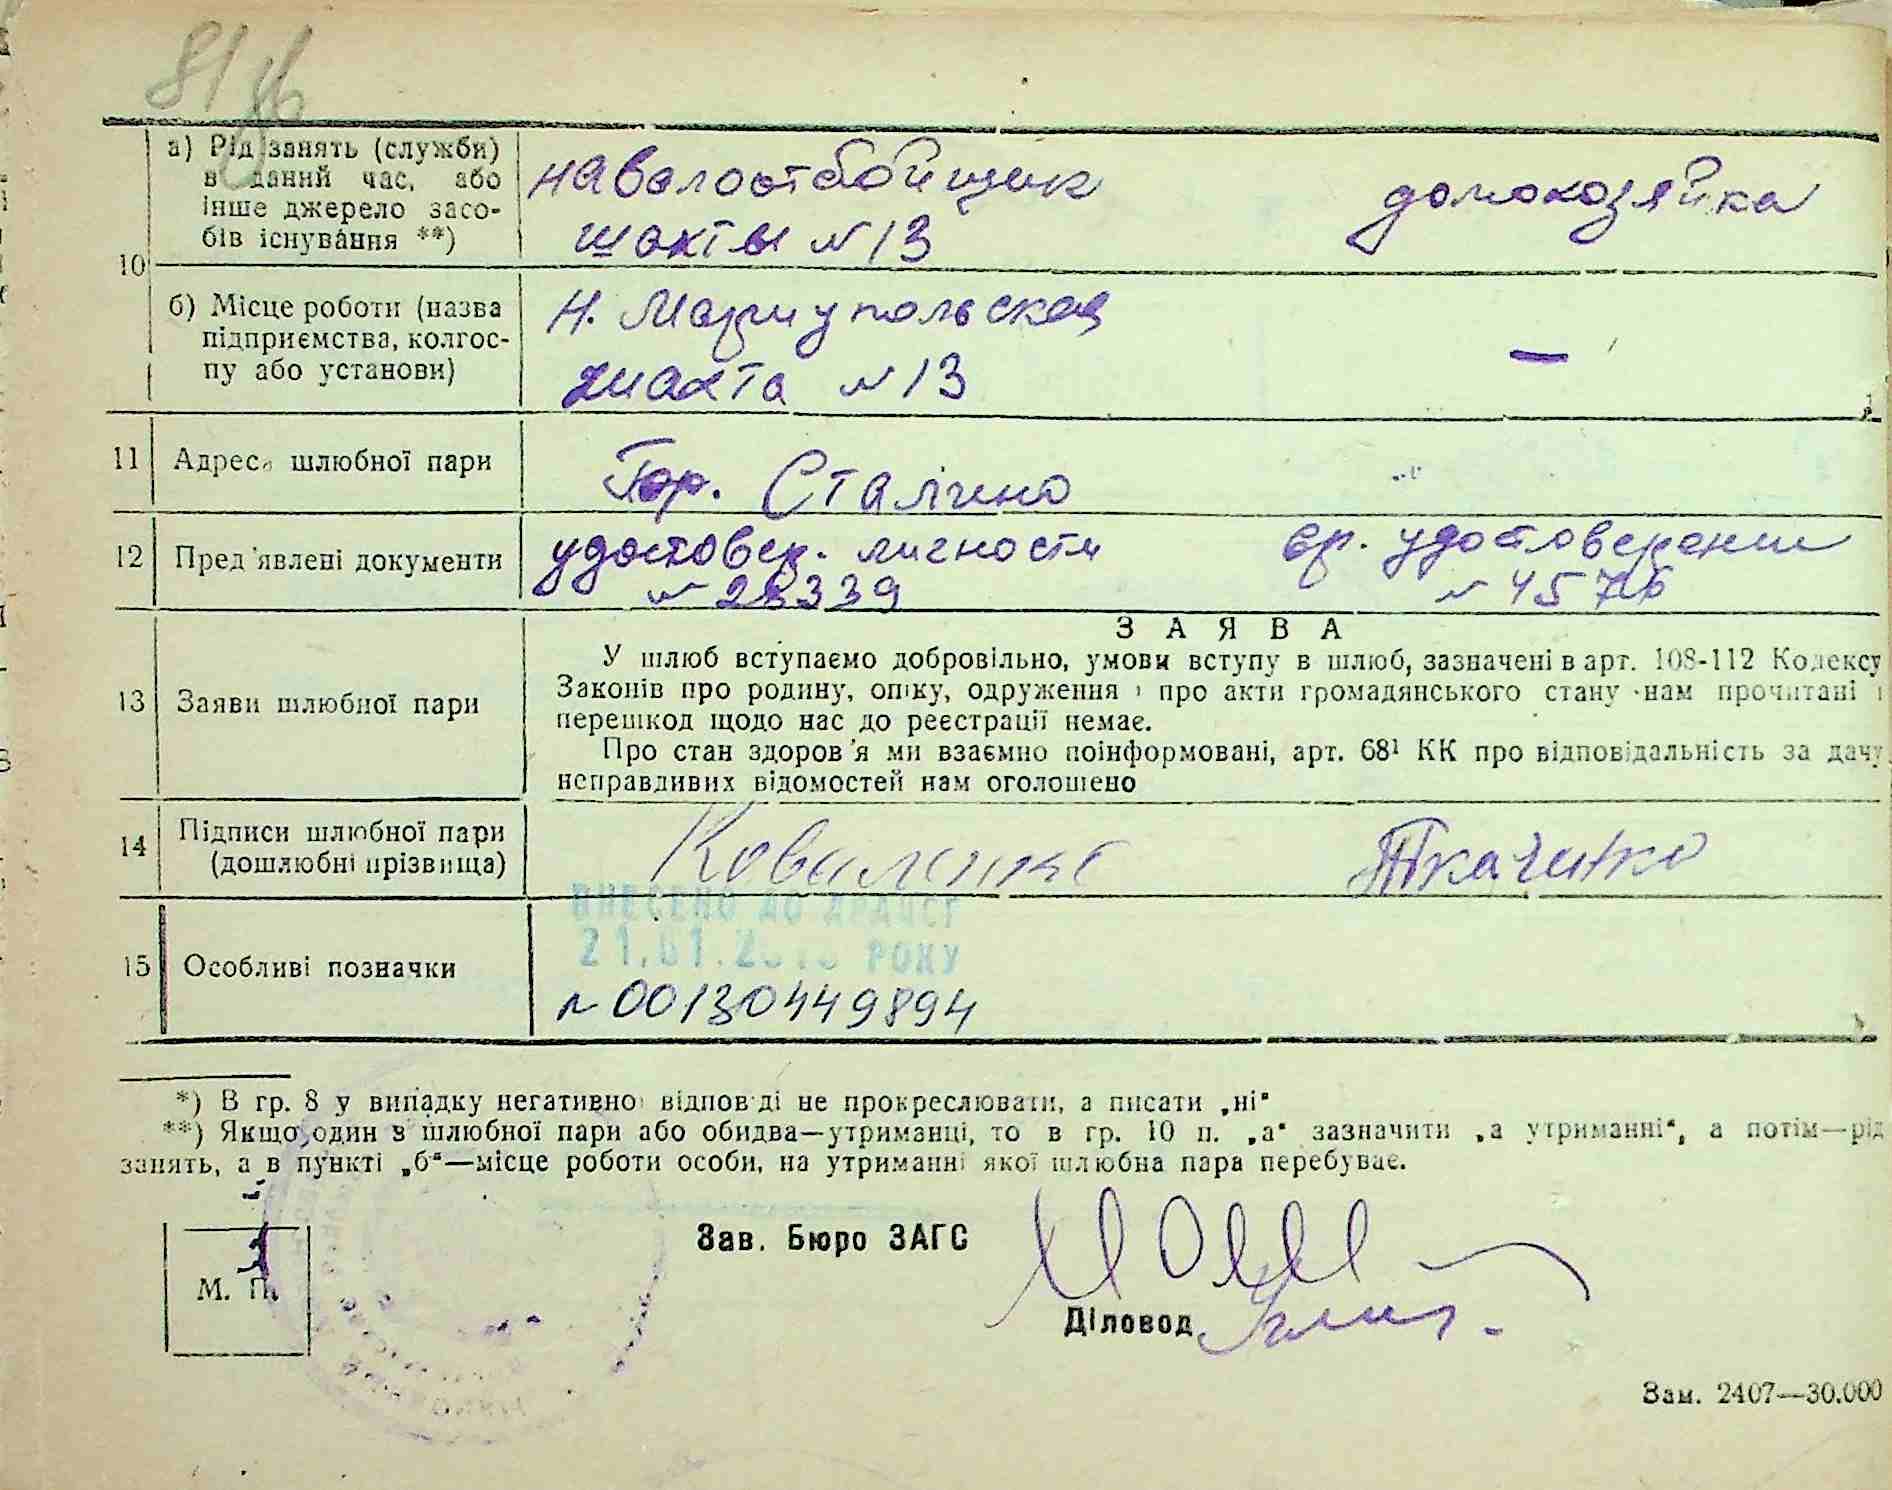 81
а) Рід занять (служби) навалоотбойщик домохозяйка
в даний час, або
інше джерело засо- шахты №13
бів існування **)
10
б) Місце роботи (назва Н. Мариупольская
підприємства, колгос- —
пу або установи) шахта №13
11 Адреса шлюбної пари Гор. Сталино
12 Пред'явлені документи удостовер. личности вр. удостоверение
№ 28339 № 4576
З А Я В А
У шлюб вступаємо добровільно, умови вступу в шлюб, зазначені в арт. 108-112 Кодексу
13 Заяви шлюбної пари Законів про родину, опіку, одруження і про акти громадянського стану нам прочитані і
перешкод щодо нас до реєстрації немає.
Про стан здоров'я ми взаємно поінформовані, арт. 68¹ КК про відповідальність за дачу
неправдивих відомостей нам оголошено
14 Підписи шлюбної пари Коваленко Ткаченко
(дошлюбні прізвища)
ВНЕСЕНО ДО ДРАЦСГ
21.01. РОКУ
15 Особливі позначки
№ 00130449894
*) В гр. 8 у випадку негативної відповіді не прокреслювати, а писати „ні“
**) Якщо один з шлюбної пари або обидва—утриманці, то в гр. 10 п. „а“ зазначити „а утриманні“, а потім—рід
занять, а в пункті „б“—місце роботи особи, на утриманні якої шлюбна пара перебуває.
Зав. Бюро ЗАГС
М. П.
Діловод
Зам. 2407—30.000